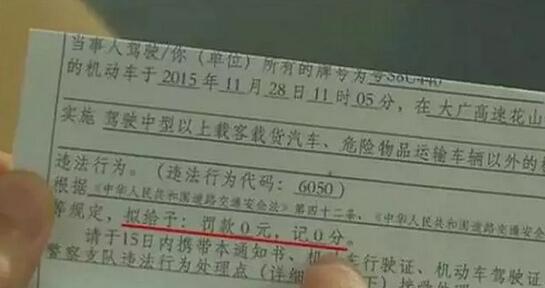 当事人驾驶/你（单位）所有的牌号为
的机动车于 2015 年 11 月 28 日 11 时 05 分，在 大广高速花山
实施 驾驶中型以上载客载货汽车、危险物品运输车辆以外的机
违法行为。（违法行为代码：6050）
根据《中华人民共和国道路交通安全法》第四十二条、《中华人民共和国道路交通安全
等规定，拟给予：罚款 0 元，记 0 分。
请于15日内携带本通知书、机动车行驶证、机动车驾驶证
警察支队违法行为处理点（详细 下）接受处理